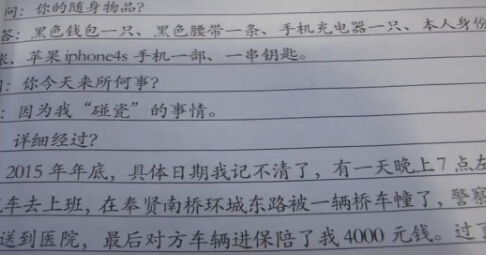 问：你的随身物品？
答：黑色钱包一只、黑色腰带一条、手机充电器一只、本人身份
张、苹果 iphone4s 手机一部、一串钥匙。
：你今天来所何事？
：因为我“碰瓷”的事情。
详细经过？
2015 年年底，具体日期我记不清了，有一天晚上 7 点左
车去上班，在奉贤南桥环城东路被一辆桥车幢了，警察
送到医院，最后对方车辆进保陪了我 4000 元钱。过了